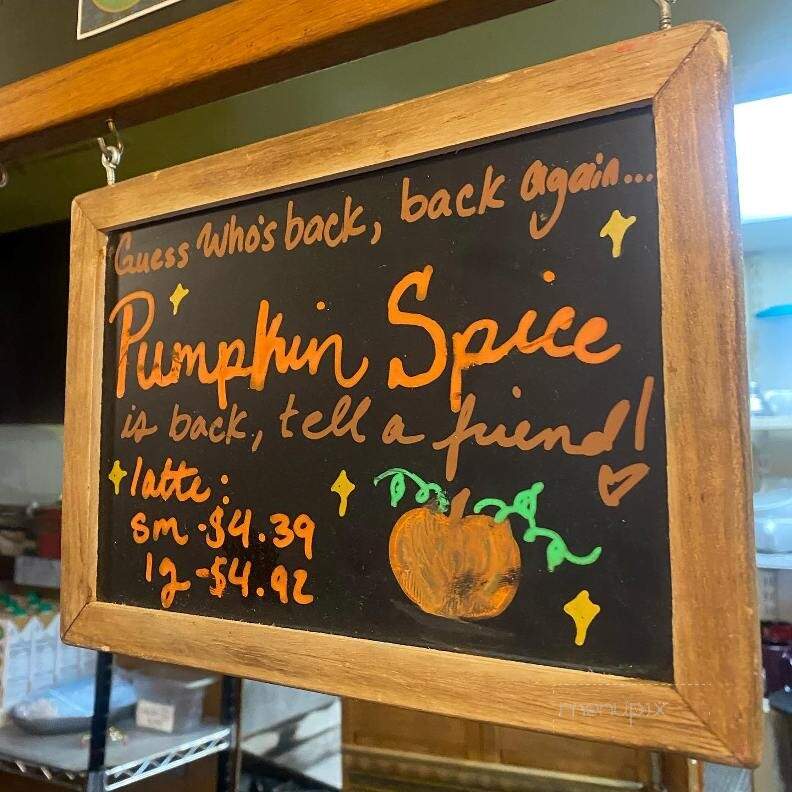 Guess Who's back, back again...
Pumpkin Spice
is back, tell a friend!
latte:
sm - $4.39
lg - $4.92
menupix